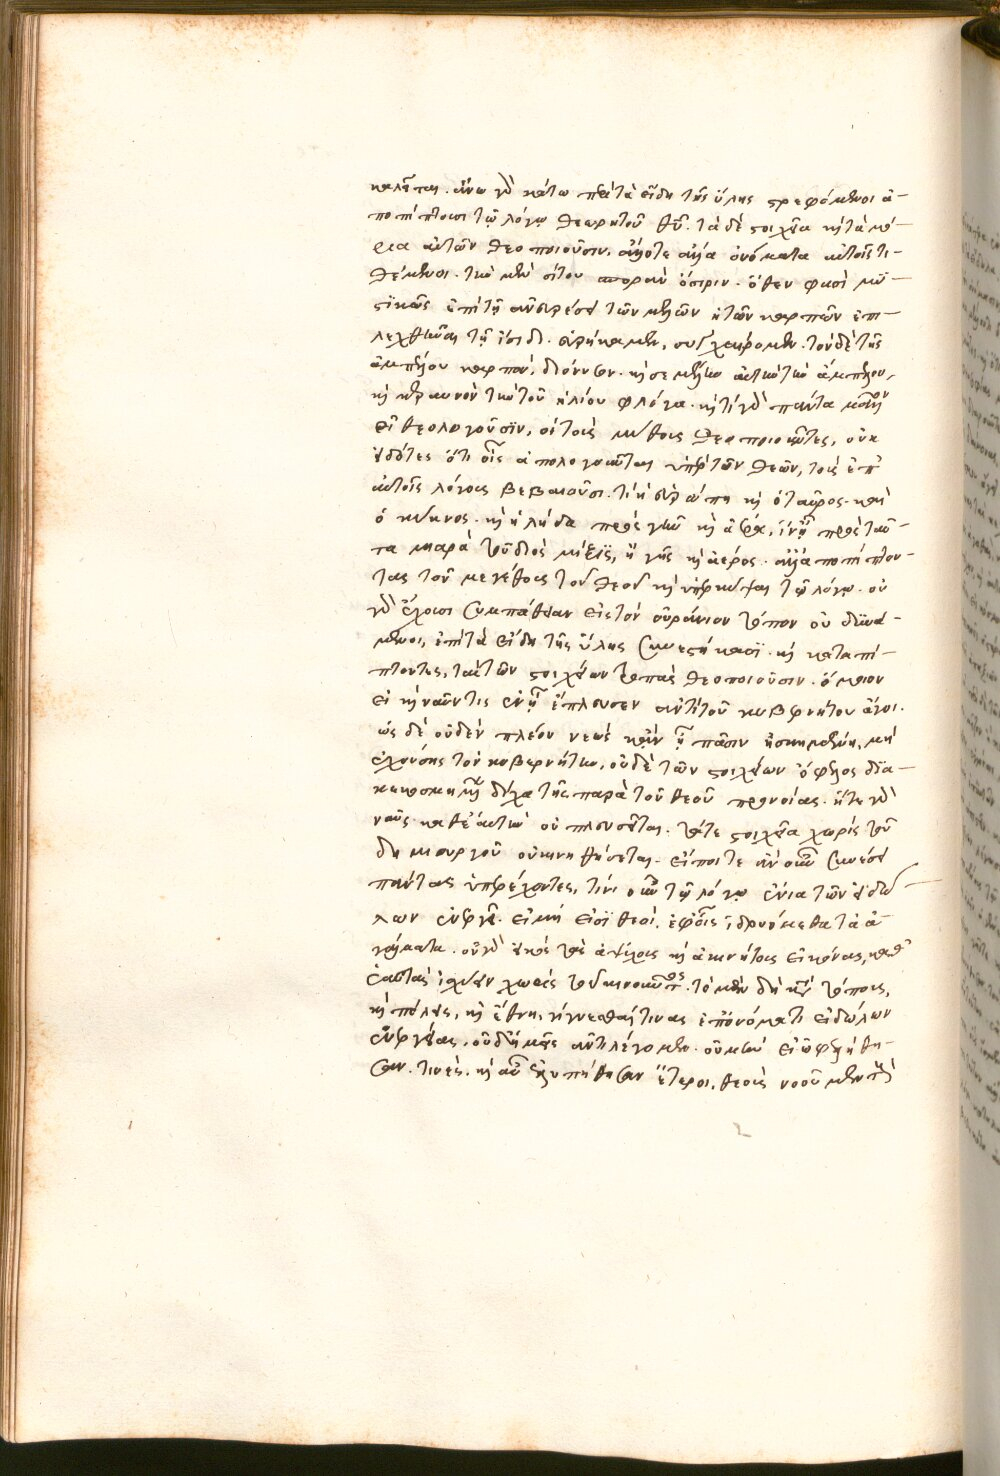 καλεῖται. ἄνω γὰρ κάτω περὶ τὰ εἴδη τῆς ὕλης στρεφόμενοι ἀ-
ποπίπτουσι τῷ λόγῳ θεωρητοῦ θεοῦ. τὰ δὲ στοιχεῖα καὶ τὰ μό-
ρια αὐτῶν θεοποιοῦσιν, ἄλλοτε ἄλλα ὀνόματα αὐτοῖς τι-
θέμενοι. τὴν μὲν σίτου σποραν ὄσιριν. ὅθεν φασὶ μυ-
στικῶς ἐπὶ τῇ ἀνευρέσει τῶν μελῶν ἢ τῶν καρπῶν ἐπι-
λεχθῆναι τῇ ἴσιδι. εὑρήκαμεν, συγχαίρομεν. τὸν δὲ τῆς
ἀμπέλου καρπὸν, διόνυσον. καὶ σεμέλην αὐτὴν τὴν ἄμπελον,
καὶ κεραυνὸν τὴν τοῦ ἡλίου φλόγα. καὶ τί γὰρ πάντα μᾶλλον
ἢ θεολογοῦσιν, οἱ τοὺς μύθους θεοποιοῦντες, οὐκ
εἰδότες ὅτι οἷς ἀπολογοῦνται ὑπὲρ τῶν θεῶν, τοὺς ἐπ'
αὐτοῖς λόγους βεβαιοῦσι. τί ἡ εὐρώπη καὶ ὁ ταῦρος. καὶ
ὁ κύκνος. καὶ ἡ λήδα πρὸς γῆν καὶ ἀέρα, ἵν' ἡ πρὸς ταῦ-
τα μιαρὰ τοῦ διὸς μίξις, ᾖ γῆς καὶ ἀέρος. ἀλλ' ἀποπίπτον-
τες τοῦ μεγέθους τοῦ θεοῦ καὶ ὑπερκύψαι τῷ λόγῳ. οὐ
γὰρ ἔχουσι συμπάθειαν εἰς τὸν οὐράνιον τόπον οὐ δυνά-
μενοι, ἐπὶ τὰ εἴδη τῆς ὕλης συνεστήκασι. καὶ καταπί-
πτοντες, τὰς τῶν στοιχείων τροπὰς θεοποιοῦσιν. ὅμοιον
εἰ καὶ ναῦν τις ἐν ᾗ ἔπλευσεν ἀντὶ τοῦ κυβερνήτου ἄγοι.
ὡς δὲ οὐδὲν πλέον νεὼς κἂν ᾖ πᾶσιν ἠσκημένη, μὴ
ἐχούσης τὸν κυβερνήτην, οὐδὲ τῶν στοιχείων ὄφελος δια-
κεκοσμημένων δίχα τῆς παρὰ τοῦ θεοῦ προνοίας. ἥ τε γὰρ
ναῦς καθ' ἑαυτὴν οὐ πλευσεῖται. τά τε στοιχεῖα χωρὶς τοῦ
δημιουργοῦ οὐ κινηθήσεται. εἴποιτε ἂν οὖν συνέσει
πάντας ὑπερέχοντες, τίνι οὖν τῷ λόγῳ ἔνια τῶν εἰδώ-
λων ἐνεργεῖ. εἰ μή εἰσι θεοί, ἐφ' οἷς ἱδρυόμεθα τὰ ἀ-
γάλματα. οὐ γὰρ εἰκὸς τὰς ἀψύχους καὶ ἀκινήτους εἰκόνας, καθ'
ἑαυτὰς ἰσχύειν χωρὶς τοῦ κινοῦντος. τὸ μὲν δὴ κατὰ τόπους,
καὶ πόλεις, καὶ ἔθνη, γίγνεσθαί τινας ἐπ' ὀνόματι εἰδώλων
ἐνεργείας, οὐδ' ἡμεῖς ἀντιλέγομεν. οὐ μὴν εἰ ὠφελήθη-
σαν. τινὲς, καὶ αὖ ἐλυπήθησαν ἕτεροι, θεοὺς νοοῦμεν τοὺς